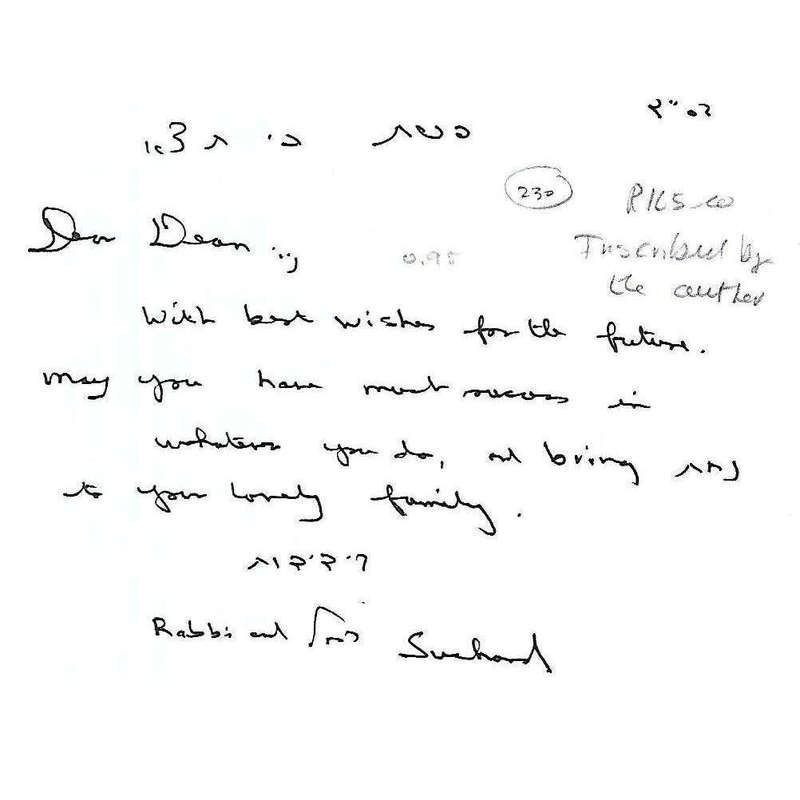 בס"ד
פרשת כי תצא
230
Dear Dean נ"י
0.95
Inscribed by
the author
With best wishes for the future.
May you have much success in
whatever you do, and bring נחת
to your lovely family.
Rabbi and Suchard